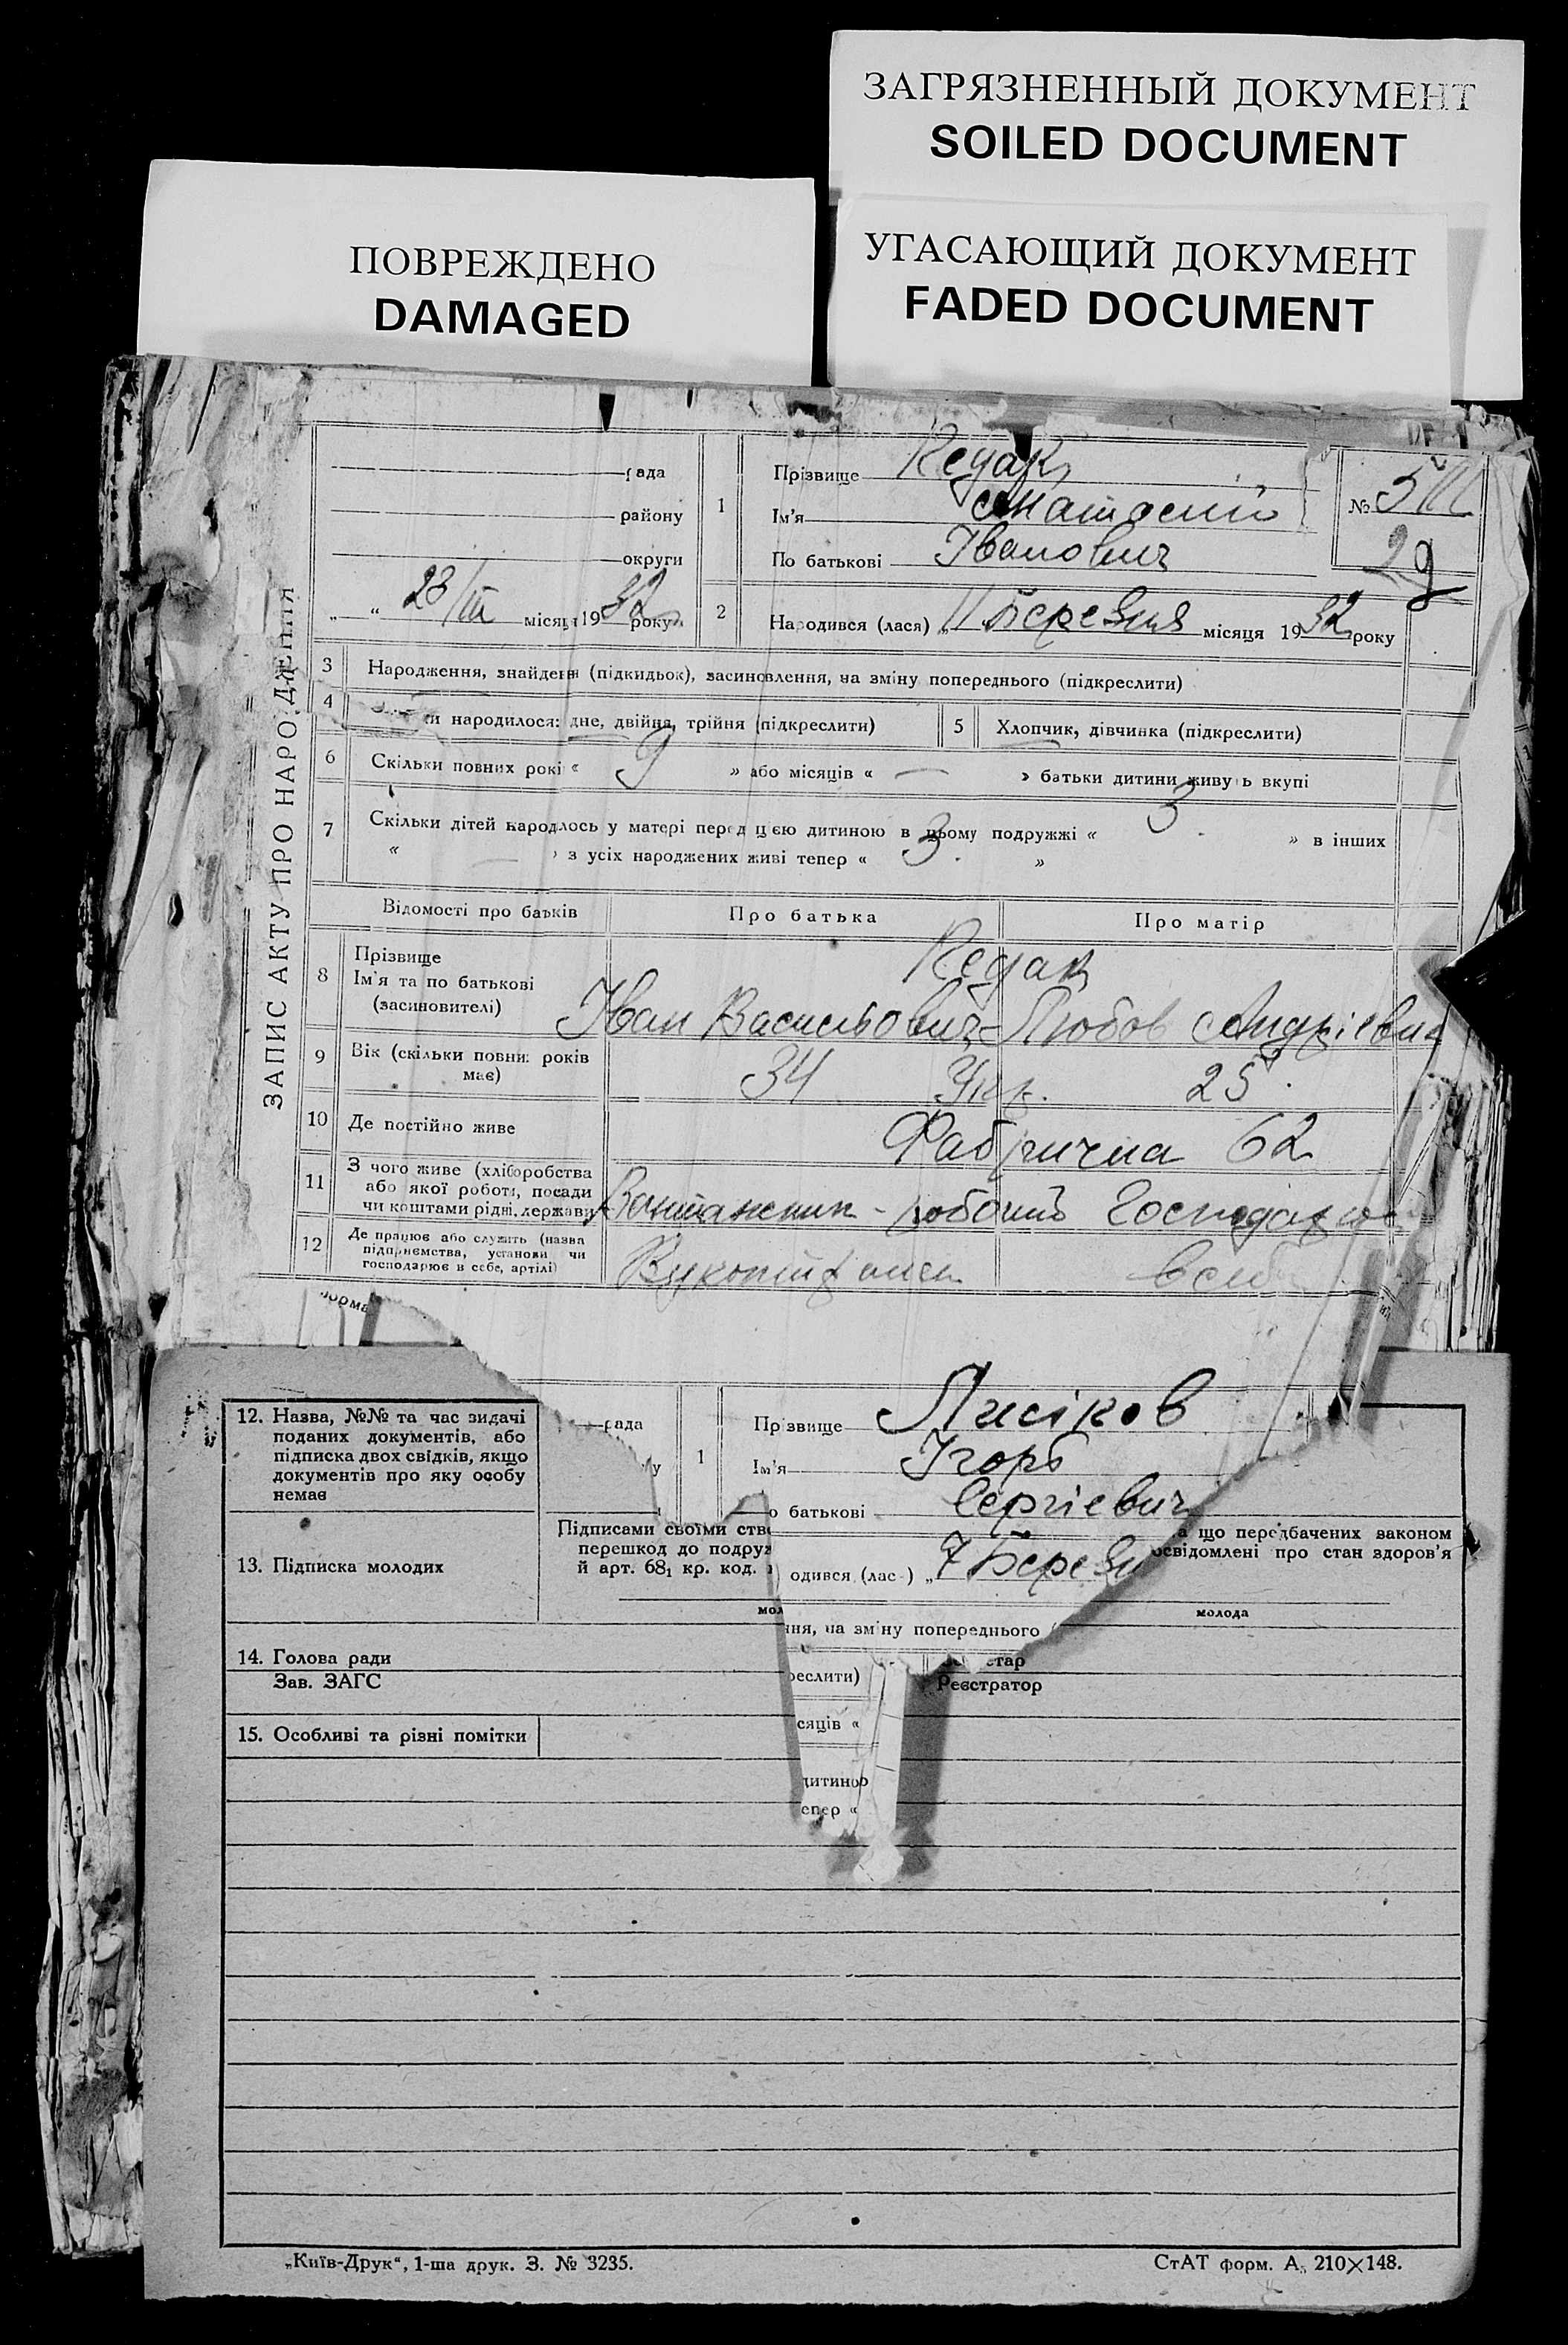 ЗАГРЯЗНЕННЫЙ ДОКУМЕНТ
SOILED DOCUMENT
ПОВРЕЖДЕНО
DAMAGED
УГАСАЮЩИЙ ДОКУМЕНТ
FADED DOCUMENT
ЗАПИС АКТУ ПРО НАРОДЖЕННЯ
рада
району
округи
„ “ 23/III місяця 1932 року
1 Прізвище Редак
Ім'я Анатолій
По батькові Іванович
№
29
2 Народився (лася) „11 Березня місяця 1932 року
3 Народження, знайдення (підкидьок), засиновлення, на зміну попереднього (підкреслити)
4 народилося: дне, двійня, трійня (підкреслити)
5 Хлопчик, дівчинка (підкреслити)
6 Скільки повних років « 9 » або місяців « — » батьки дитини живуть вкупі
7 Скільки дітей народлось у матері перед цією дитиною в цьому подружжі « 3 » в інших
« — » з усіх народжених живі тепер « 3 »
Відомості про батьків Про батька Про матір
8 Прізвище
Ім'я та по батькові
(засиновителі)
Редак
Іван Васильович - Любов Андріевна
9 Вік (скільки повних років має)
34 Укр. 25
10 Де постійно живе Фабрична 62
11 З чого живе (хліборобства
або якої роботи, посади
чи коштами рідні, держави)
Вантажник - робочий
12 Де працює або служить (назва
підприємства, установи чи
господарює в себе, артілі)
форма
рада
1 Прізвище Лисіков
Ім'я Ігорь
о батькові Сергіевич
одився (лас-) „7 Березн
ння, на зміну попереднього
реслити)
сяців «
дитиною
епер «
12. Назва, №№ та час видачі
поданих документів, або
підписка двох свідків, якщо
документів про яку особу
немає
13. Підписка молодих
Підписами своїми ств
перешкод до подруж
й арт. 68₁ кр. код.
що передбачених законом
освідомлені про стан здоров'я
мол
молода
14. Голова ради
Зав. ЗАГС
тар
Реєстратор
15. Особливі та різні помітки
„Київ-Друк“, 1-ша друк. З. № 3235.
СтАТ форм. А₅ 210×148.